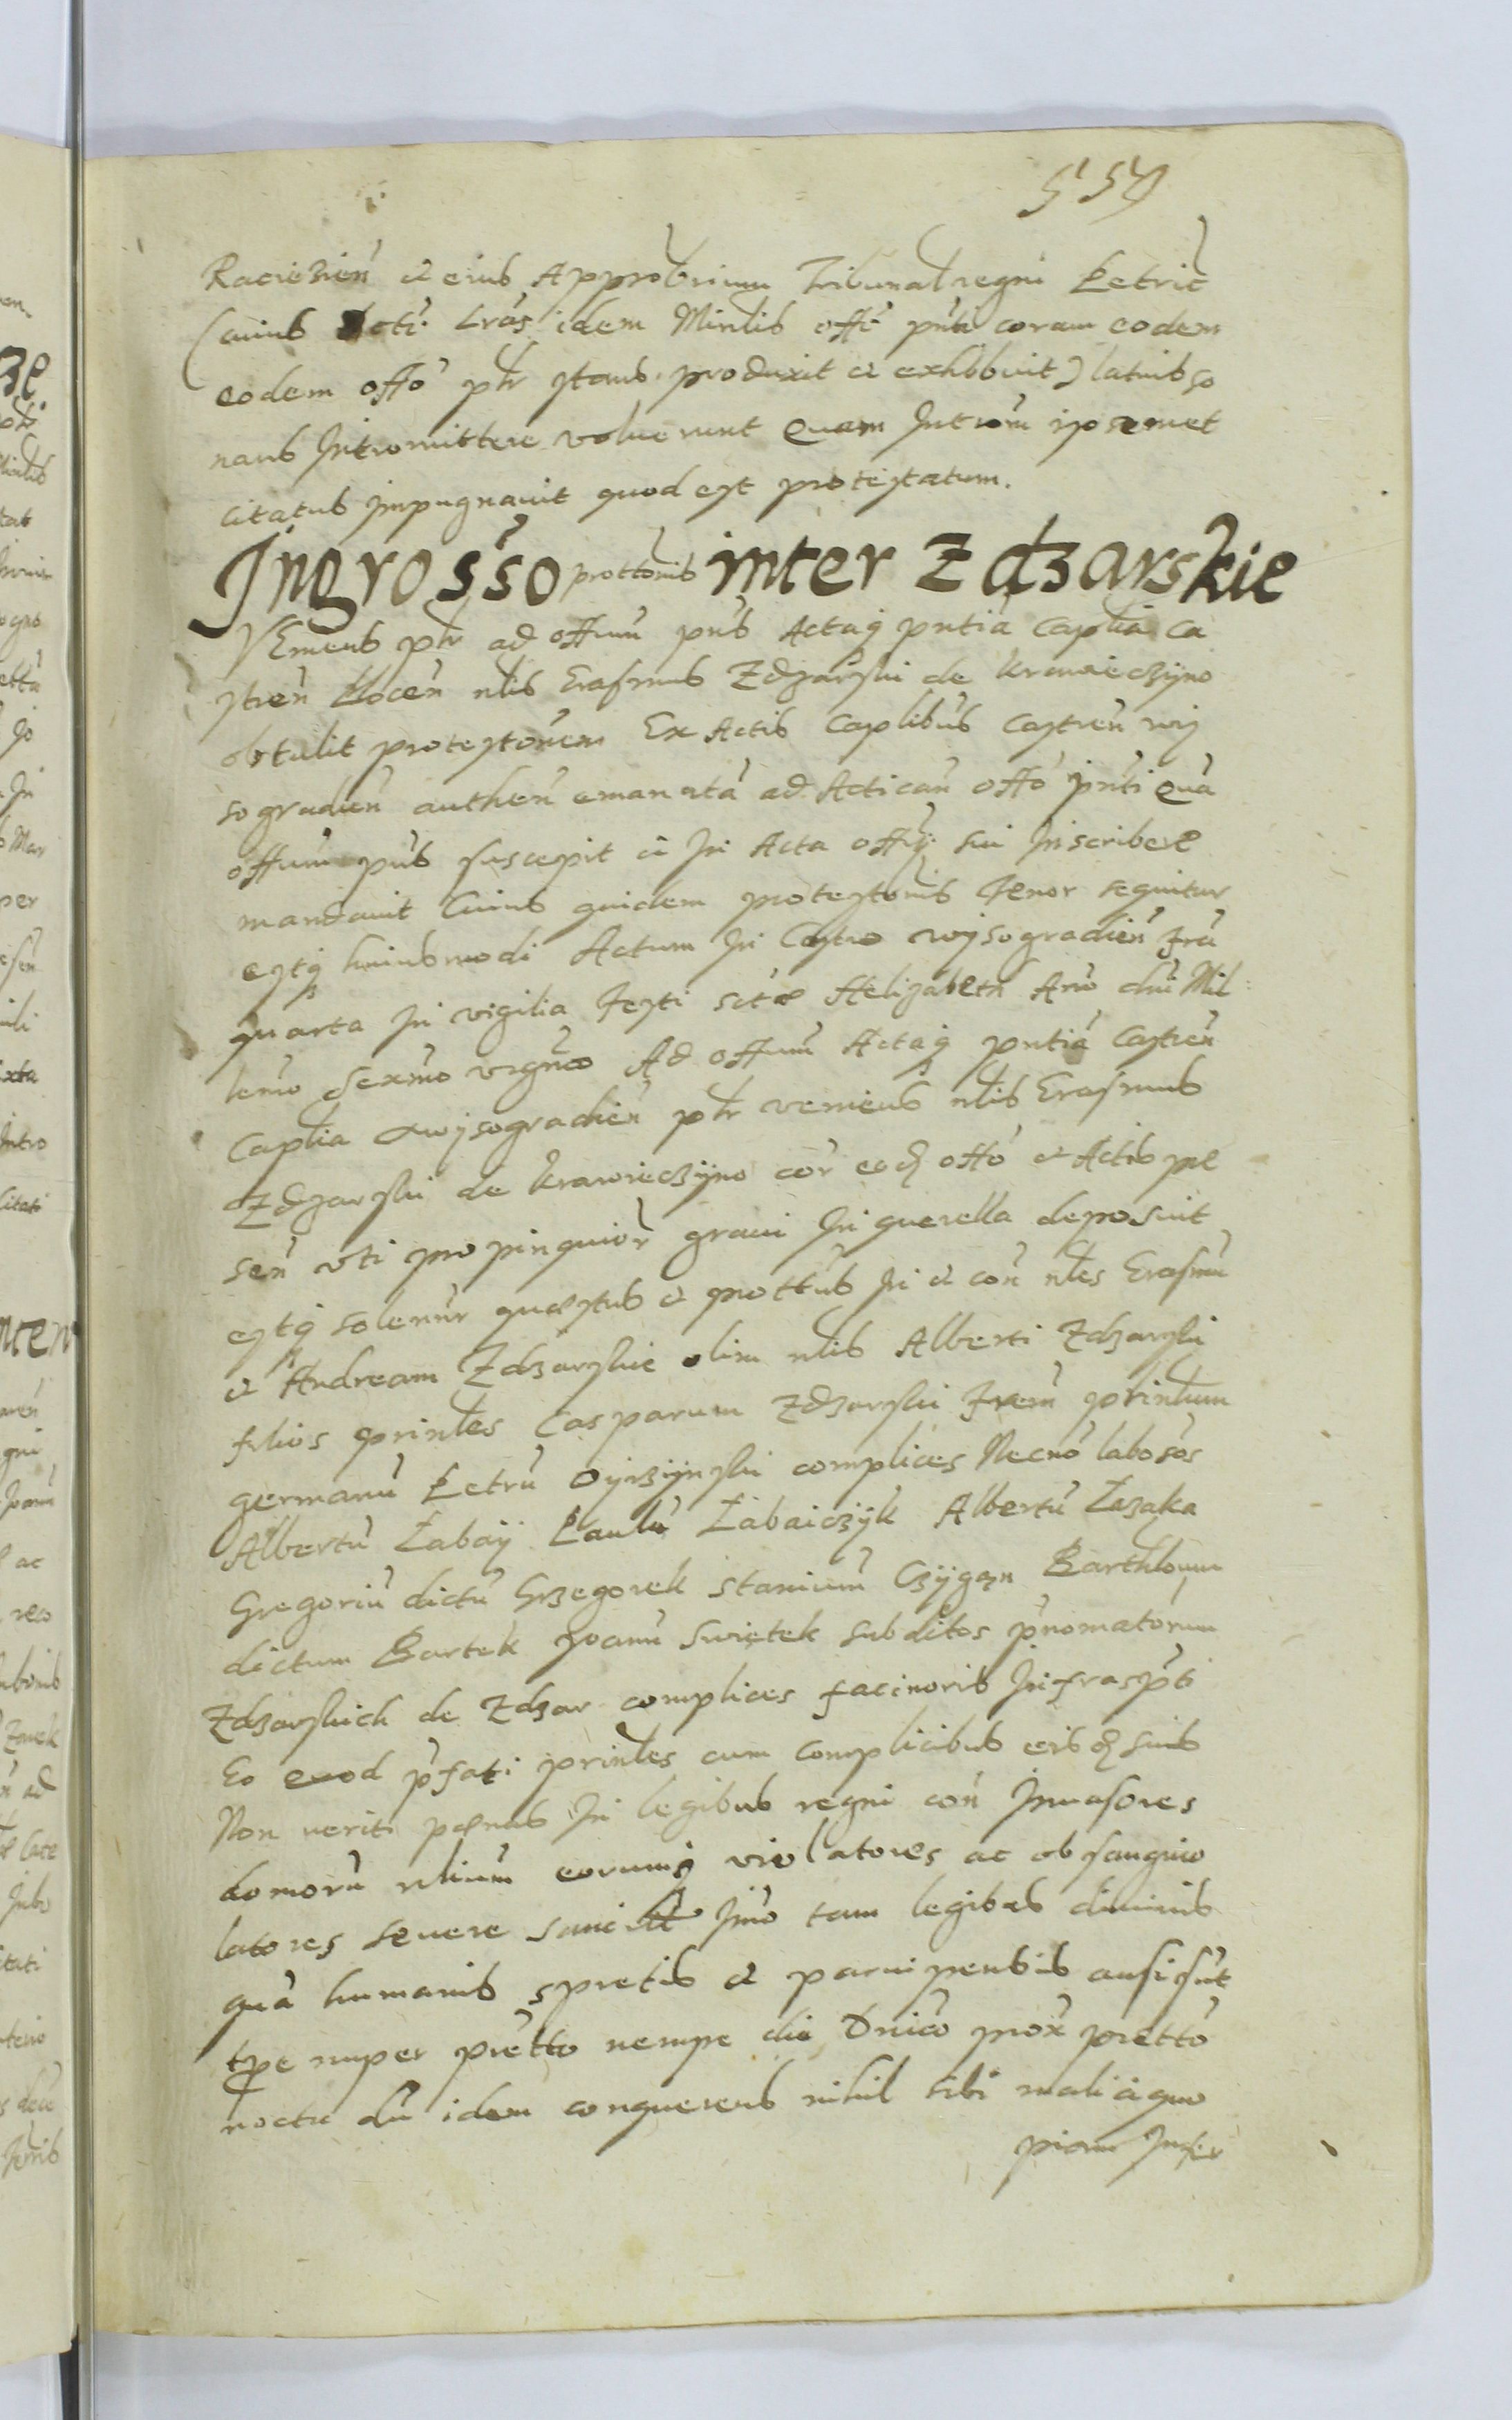 559
Raciezien̄ et eius Approb̄rium Tribunal regni Petric̄
(cuius dcti Lrās idem Mirlis offi pn̄ti coram eodem
eodem offō ptr̄ stans produxit et exhibbuit) latius so
nans Intromittere voluerunt Quam Introm̄ ipsemet
citatus impugnavit quod est protestatum.
Ingrosso prottonis inter Zdzarskie
VEniens ptr̄ ad offium pn̄s Actaq pn̄tia Caplia Ca
stren̄ Plocen̄ nlis Erasmus Zdzarski de krawieczyno
obtulit protestōnem Ex Actis Caplibus Castren̄ wy
sogradien̄ authen̄ emanatā ad Actican̄ offō pn̄ti Quā
offium pn̄s suscepit et In Acta offy sui Inscribere
mandavit Cuius quidem protestonis Tenor sequitur
estq huiusmodi Actum In Castro wysogradien̄ frā
quarta In vigilia Festi sctæ Helizabeth Anō dn̄i Mil
lemo Sexmo vigno Ad offium Actaq pn̄tia Castren̄
Caplia wysogradien̄ ptr̄ veniens nlis Erasmus
Zdzarski de krawieczyno cor̄ eod offō et Actis pre
sen̄ vti propinquior̄ gravi In querella deposuit
estq solenn̄r quæstus et prottus In et con̄ nles Erasmū
et Andream Zdzarskie olim nlis Alberti Zdzarski
filios prinles Casparum Zdzarski frem̄ prinlum
germanū Petrū Oyrzynski complices Necnō labosos
Albertū Zabay Paulū Zabaiczyk Albertū Łazaka
Gregoriū dictū Grzegorek stanium̄ Czygan Barthlomm
dictum Bartek Joanū Swiętek subditos pn̄omatorum
Zdzarskich de Zdzar complices facinoris Infraspti
Eo quod p̄fati prinles cum Complicibus eisd suis
Non veriti pænas In legibus regni con̄ Invasores
domorū nlium̄ eorumq violatores ac ob sanguio
latores severe sancitt Imo tam legibus divinis
quā humanis spretis et parvipensis ausi sūt
tpe nuper p̄ttō nempe die Dnico prox̄ prettō
noctu dū idem conquerens nihil sibi mali a quo
piam Infer